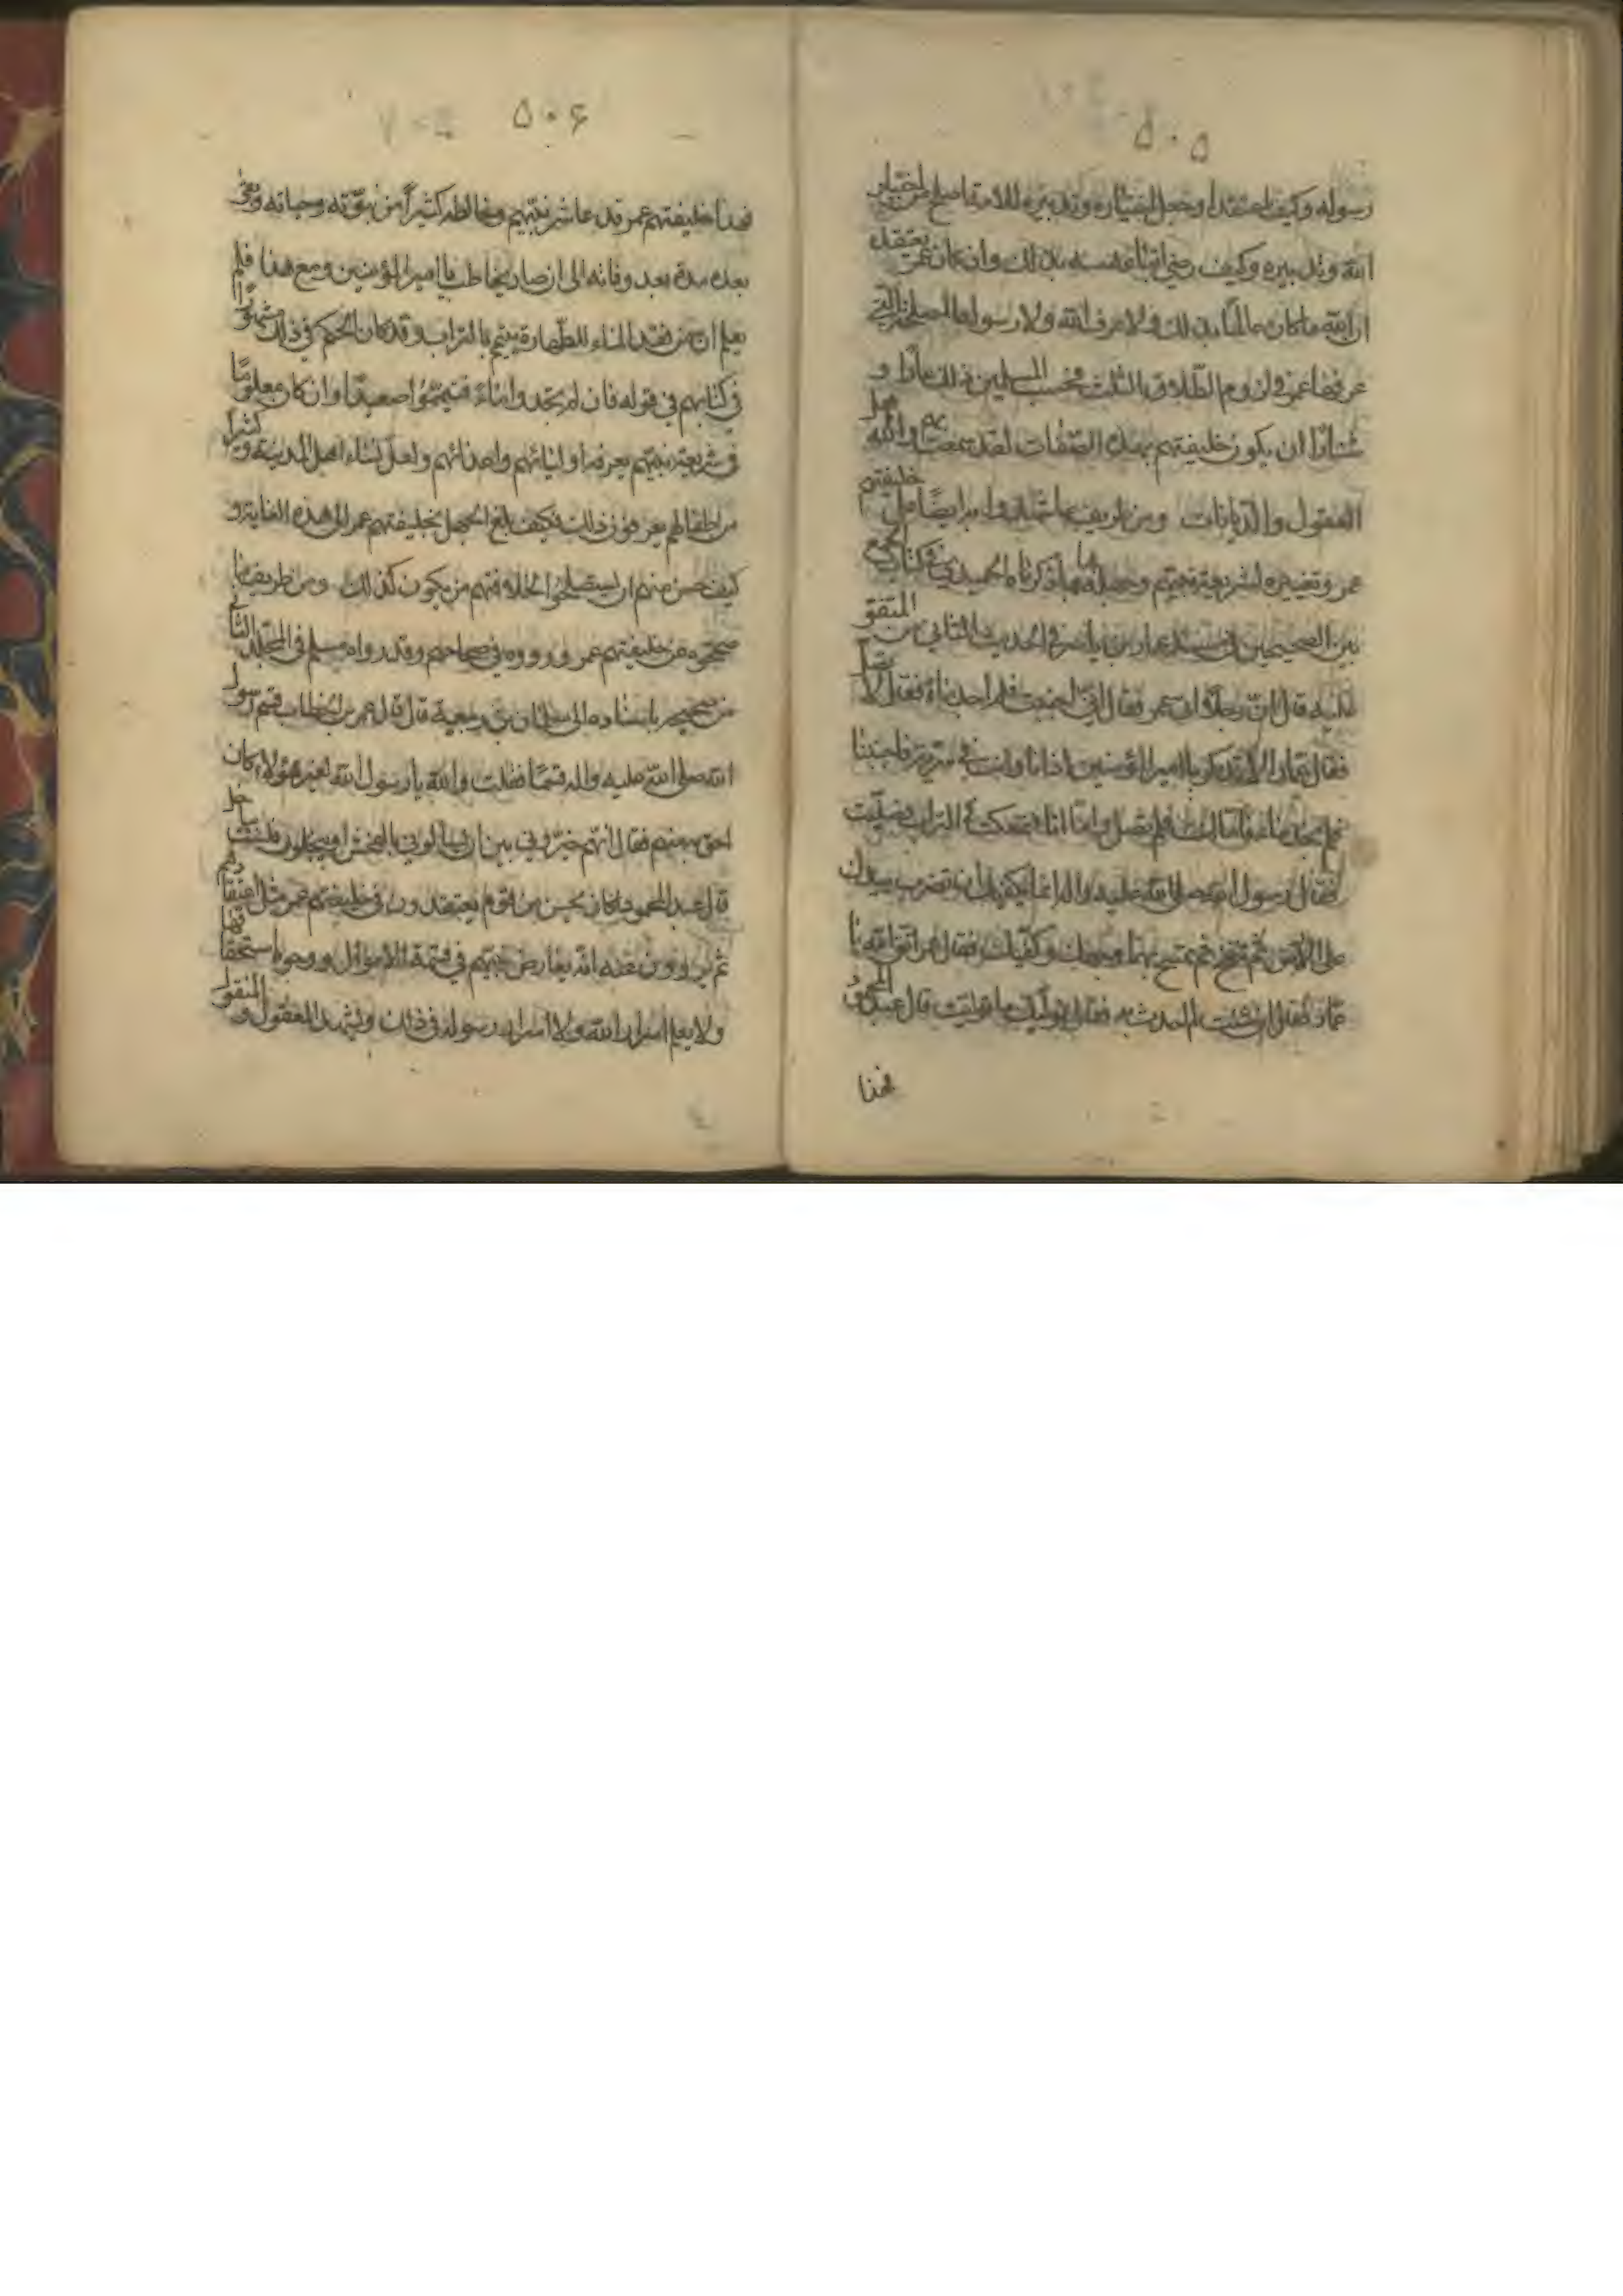 ۵۰۵
رسوله وكيف اعتقد او جعل اختياره وتدبيره للامة اصلح من اختيار
الله وتدبيره وكيف رضي اتباعه بذلك وان كان عمر يعتقد
ان الله ما كان عالما بذلك ولا عرف الله ولا رسوله المصلحة التي
عرفها عمر في لزوم الطلاق بالثلث فحسب المسلمين ذلك عارا و
شنارا ان يكون خليفتهم بهذه الصفات لقد تعجبت والله
العقول والديانات ومن طريف ما شهدوا به ايضا على خليفتهم
عمر وتغييره لشريعة نبيهم وجهله بها ما ذكره الحميدي في كتاب الجمع
بين الصحيحين في مسند عمار بن ياسر في الحديث الثاني من المتفق
عليه قال ان رجلا اتى عمر فقال اني اجنبت فلم اجد ماء فقال لا تصل
فقال عمار الا تذكر يا امير المؤمنين اذ انا وانت في سرية فاجنبنا
فلم نجد ماء فاما انت فلم تصل واما انا فتمعكت في التراب وصليت
فقال رسول الله صلى الله عليه واله انما يكفيك ان تضرب بيديك
على الارض ثم تنفخ ثم تمسح بهما وجهك وكفيك فقال عمر اتق الله يا
عمار فقال ان شئت لم احدث به فقال نوليك ما توليت قال عبد المحمود
فهذا
۵۰۶
فهذا خليفتهم عمر قد عاشر نبيهم وخالطه كثيرا من نبوته وحياته وبقي
بعده مدة بعد وفاته الى ان صار يخاطب يا امير المؤمنين ومع هذا فلم
يعلم ان من فقد الماء للطهارة يتيمم بالتراب وقد كان الحكم في ذلك مشهورا
في كتابهم في قوله فان لم تجدوا ماء فتيمموا صعيدا وان كان معلوما
في شريعة نبيهم يعرفه اولياؤهم واعدائهم ولعل نساء اهل المدينة وكثيرا
من اطفالهم يعرفون ذلك فكيف بلغ الجهل بخليفتهم عمر الى هذه الغاية و
كيف حسن منهم ان يستصلحوا لخلافتهم من يكون كذلك ومن طريف ما
صححوه عن خليفتهم عمر ورووه في صحاحهم وقد رواه مسلم في المجلد الثالث
من صحيحه باسناده الى سلمان بن ربيعة قال قال عمر بن الخطاب قسم رسول
الله صلى الله عليه واله قسما فقلت والله يا رسول الله لغير هؤلاء كان
احق به منهم فقال انهم خيروني بين ان يسألوني بالفحش او يبخلون فلست بباخل
قال عبد المحمود اما كان يحسن من قوم يعتقدون في خليفتهم عمر مثل اعتقادهم
ثم يروون عنه انه يعارض نبيهم في قسمة الاموال ووجوه استحقاقها
ولا يعلم اسرار الله ولا اسرار رسوله في ذلك ويشهد المعقول والمنقول